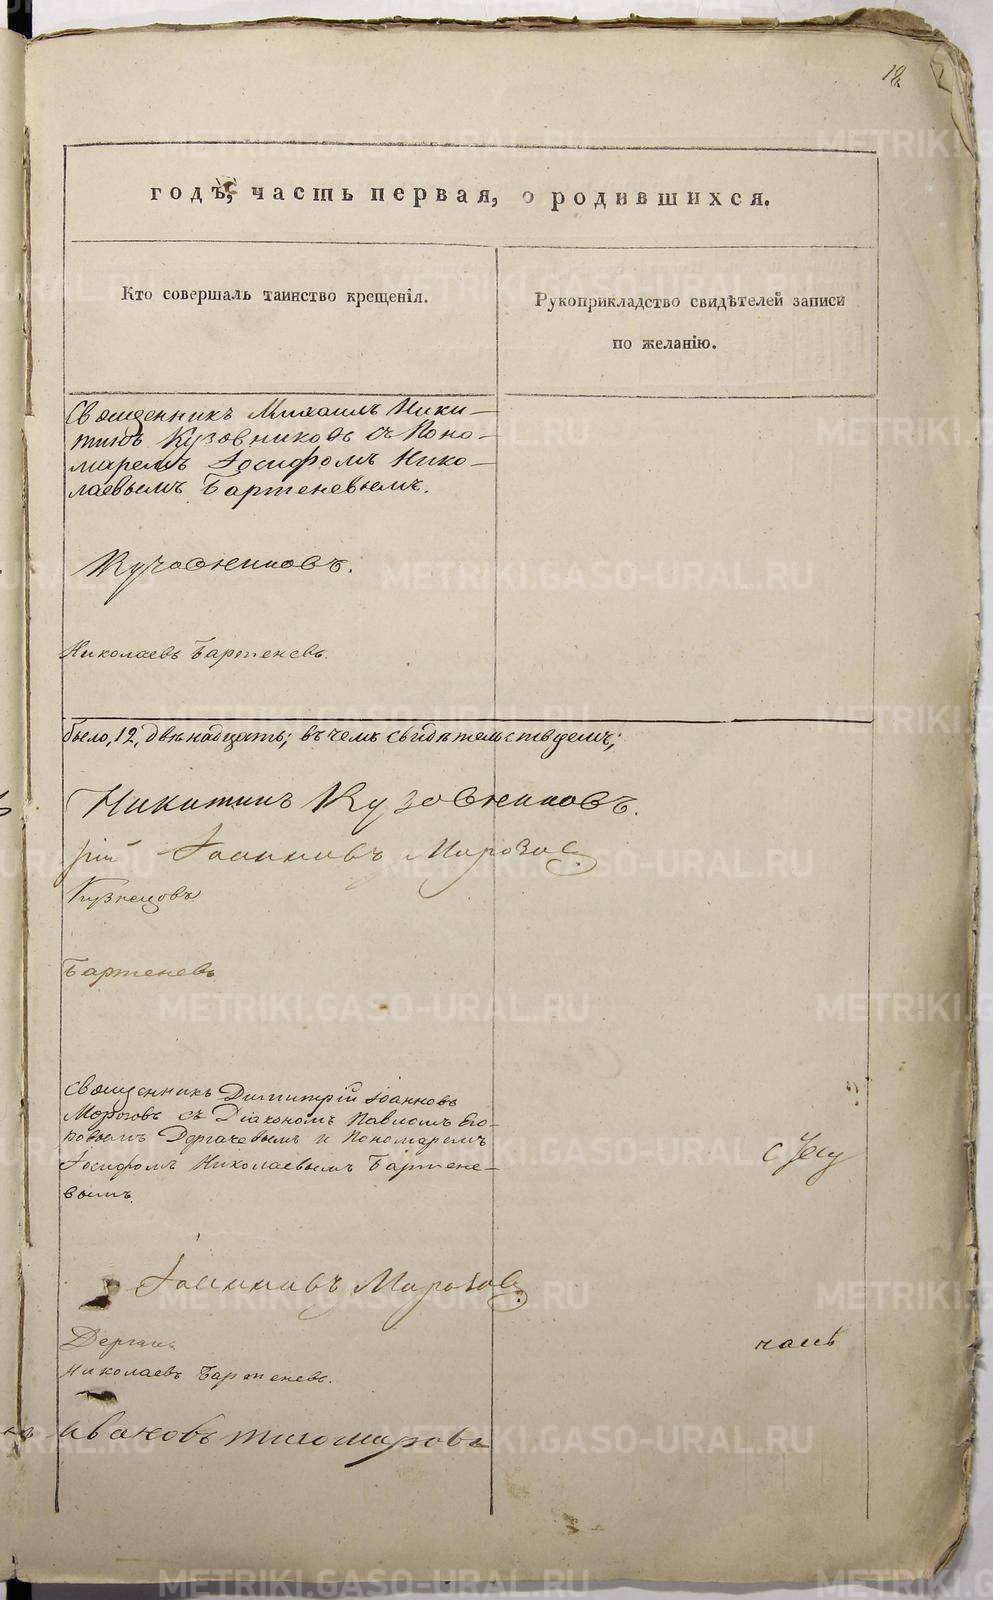 12
годъ, часть первая, о родившихся.
Кто совершалъ таинство крещенія.
Рукоприкладство свидѣтелей записи
по желанію.
Священникъ Михаилъ Ники–
тинъ Кузовниковъ съ Поно–
маремъ Іосифомъ Нико–
лаевымъ Бартеневымъ.
Кузовниковъ.
Николаевъ Бартеневъ.
было, 12, двѣнадцать; въ чемъ свидѣтельствуемъ;
Никитинъ Кузовниковъ.
рій Іоанновъ Морозов
Кузнецовъ
Бартеневъ
Священникъ Димитрій Іоанновъ
Морозовъ съ Діакономъ Павломъ Его–
ровымъ Дергачевымъ и Пономаремъ
Іосифомъ Николаевымъ Бартене–
вымъ.
Іоанновъ Морозов
Дергач
Николаевъ Бартеневъ.
Ивановъ Тихомировъ
METRIKI.GASO-URAL.RU